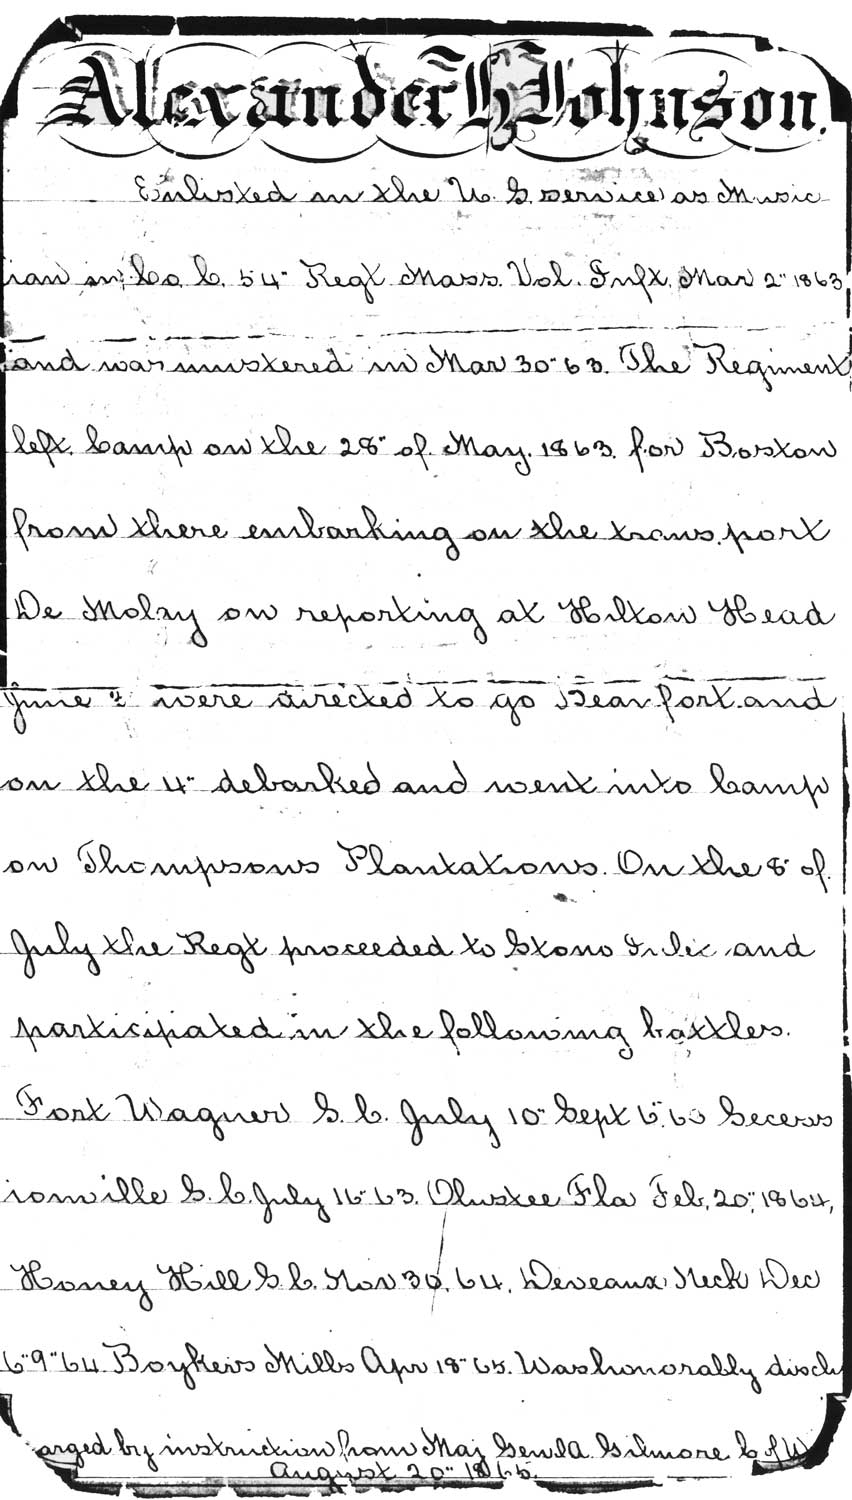 Alexander H Johnson.
Enlisted in the U. S. service as Music
ian in Co. C. 54" Regt. Mass. Vol. Inft. Mar 2" 1863
and was mustered in Mar 30" 63. The Regiment
left Camp on the 28" of May. 1863. for Boston
from there embarking on the trans.port
De Molay on reporting at Hilton Head
June were directed to go Beaufort and
on the 4" debarked and went into Camp
on Thompsons Plantations. On the 8" of
July the Regt proceeded to Stono and
participated in the following battles.
Fort Wagner S. C. July 10" Sept 6" 63 Secess
ionville S. C. July 16" 63. Olustee Fla Feb. 20", 1864,
Honey Hill S. C. Nov 30, 64, Deveaux Neck Dec
6" 9" 64 Boykins Mills Apr 18" 65. Was honorably disch
arged by instruction from Maj Genl Gilmore
August 20" 1865.